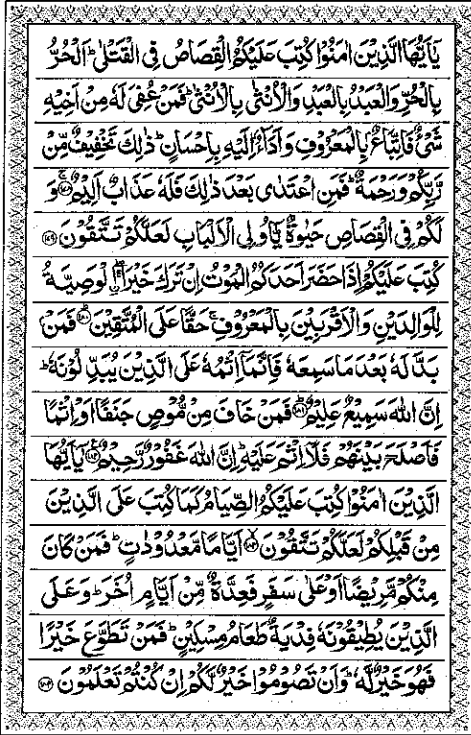 يٰٓاَيُّهَا الَّذِيْنَ اٰمَنُوْا كُتِبَ عَلَيْكُمُ الْقِصَاصُ فِى الْقَتْلٰىؕ اَلْحُرُّ
بِالْحُرِّ وَالْعَبْدُ بِالْعَبْدِ وَالْاُنْثٰى بِالْاُنْثٰىؕ فَمَنْ عُفِىَ لَهٗ مِنْ اَخِيْهِ
شَىْءٌ فَاتِّبَاعٌۢ بِالْمَعْرُوْفِ وَاَدَآءٌ اِلَيْهِ بِاِحْسَانٍؕ ذٰلِكَ تَخْفِيْفٌ مِّنْ
رَّبِّكُمْ وَرَحْمَةٌؕ فَمَنِ اعْتَدٰى بَعْدَ ذٰلِكَ فَلَهٗ عَذَابٌ اَلِيْمٌ ﴿۱۷۸﴾ وَ
لَكُمْ فِى الْقِصَاصِ حَيٰوةٌ يّٰٓاُولِى الْاَلْبَابِ لَعَلَّكُمْ تَتَّقُوْنَ ﴿۱۷۹﴾
كُتِبَ عَلَيْكُمْ اِذَا حَضَرَ اَحَدَكُمُ الْمَوْتُ اِنْ تَرَكَ خَيْرَا ۖۚ اۨلْوَصِيَّةُ
لِلْوَالِدَيْنِ وَالْاَقْرَبِيْنَ بِالْمَعْرُوْفِۚ حَقًّا عَلَى الْمُتَّقِيْنَؕ ﴿۱۸۰﴾ فَمَنْۢ
بَدَّلَهٗ بَعْدَ مَا سَمِعَهٗ فَاِنَّمَاۤ اِثْمُهٗ عَلَى الَّذِيْنَ يُبَدِّلُوْنَهٗؕ
اِنَّ اللّٰهَ سَمِيْعٌ عَلِيْمٌؕ ﴿۱۸۱﴾ فَمَنْ خَافَ مِنْ مُّوْصٍ جَنَفًا اَوْ اِثْمًا
فَاَصْلَحَ بَيْنَهُمْ فَلَاۤ اِثْمَ عَلَيْهِؕ اِنَّ اللّٰهَ غَفُوْرٌ رَّحِيْمٌ ﴿۱۸۲﴾ يٰٓاَيُّهَا
الَّذِيْنَ اٰمَنُوْا كُتِبَ عَلَيْكُمُ الصِّيَامُ كَمَا كُتِبَ عَلَى الَّذِيْنَ
مِنْ قَبْلِكُمْ لَعَلَّكُمْ تَتَّقُوْنَۙ ﴿۱۸۳﴾ اَيَّامًا مَّعْدُوْدٰتٍؕ فَمَنْ كَانَ
مِنْكُمْ مَّرِيْضًا اَوْ عَلٰى سَفَرٍ فَعِدَّةٌ مِّنْ اَيَّامٍ اُخَرَؕ وَعَلَى
الَّذِيْنَ يُطِيْقُوْنَهٗ فِدْيَةٌ طَعَامُ مِسْكِيْنٍؕ فَمَنْ تَطَوَّعَ خَيْرًا
فَهُوَ خَيْرٌ لَّهٗؕ وَاَنْ تَصُوْمُوْا خَيْرٌ لَّكُمْ اِنْ كُنْتُمْ تَعْلَمُوْنَ ﴿۱۸۴﴾